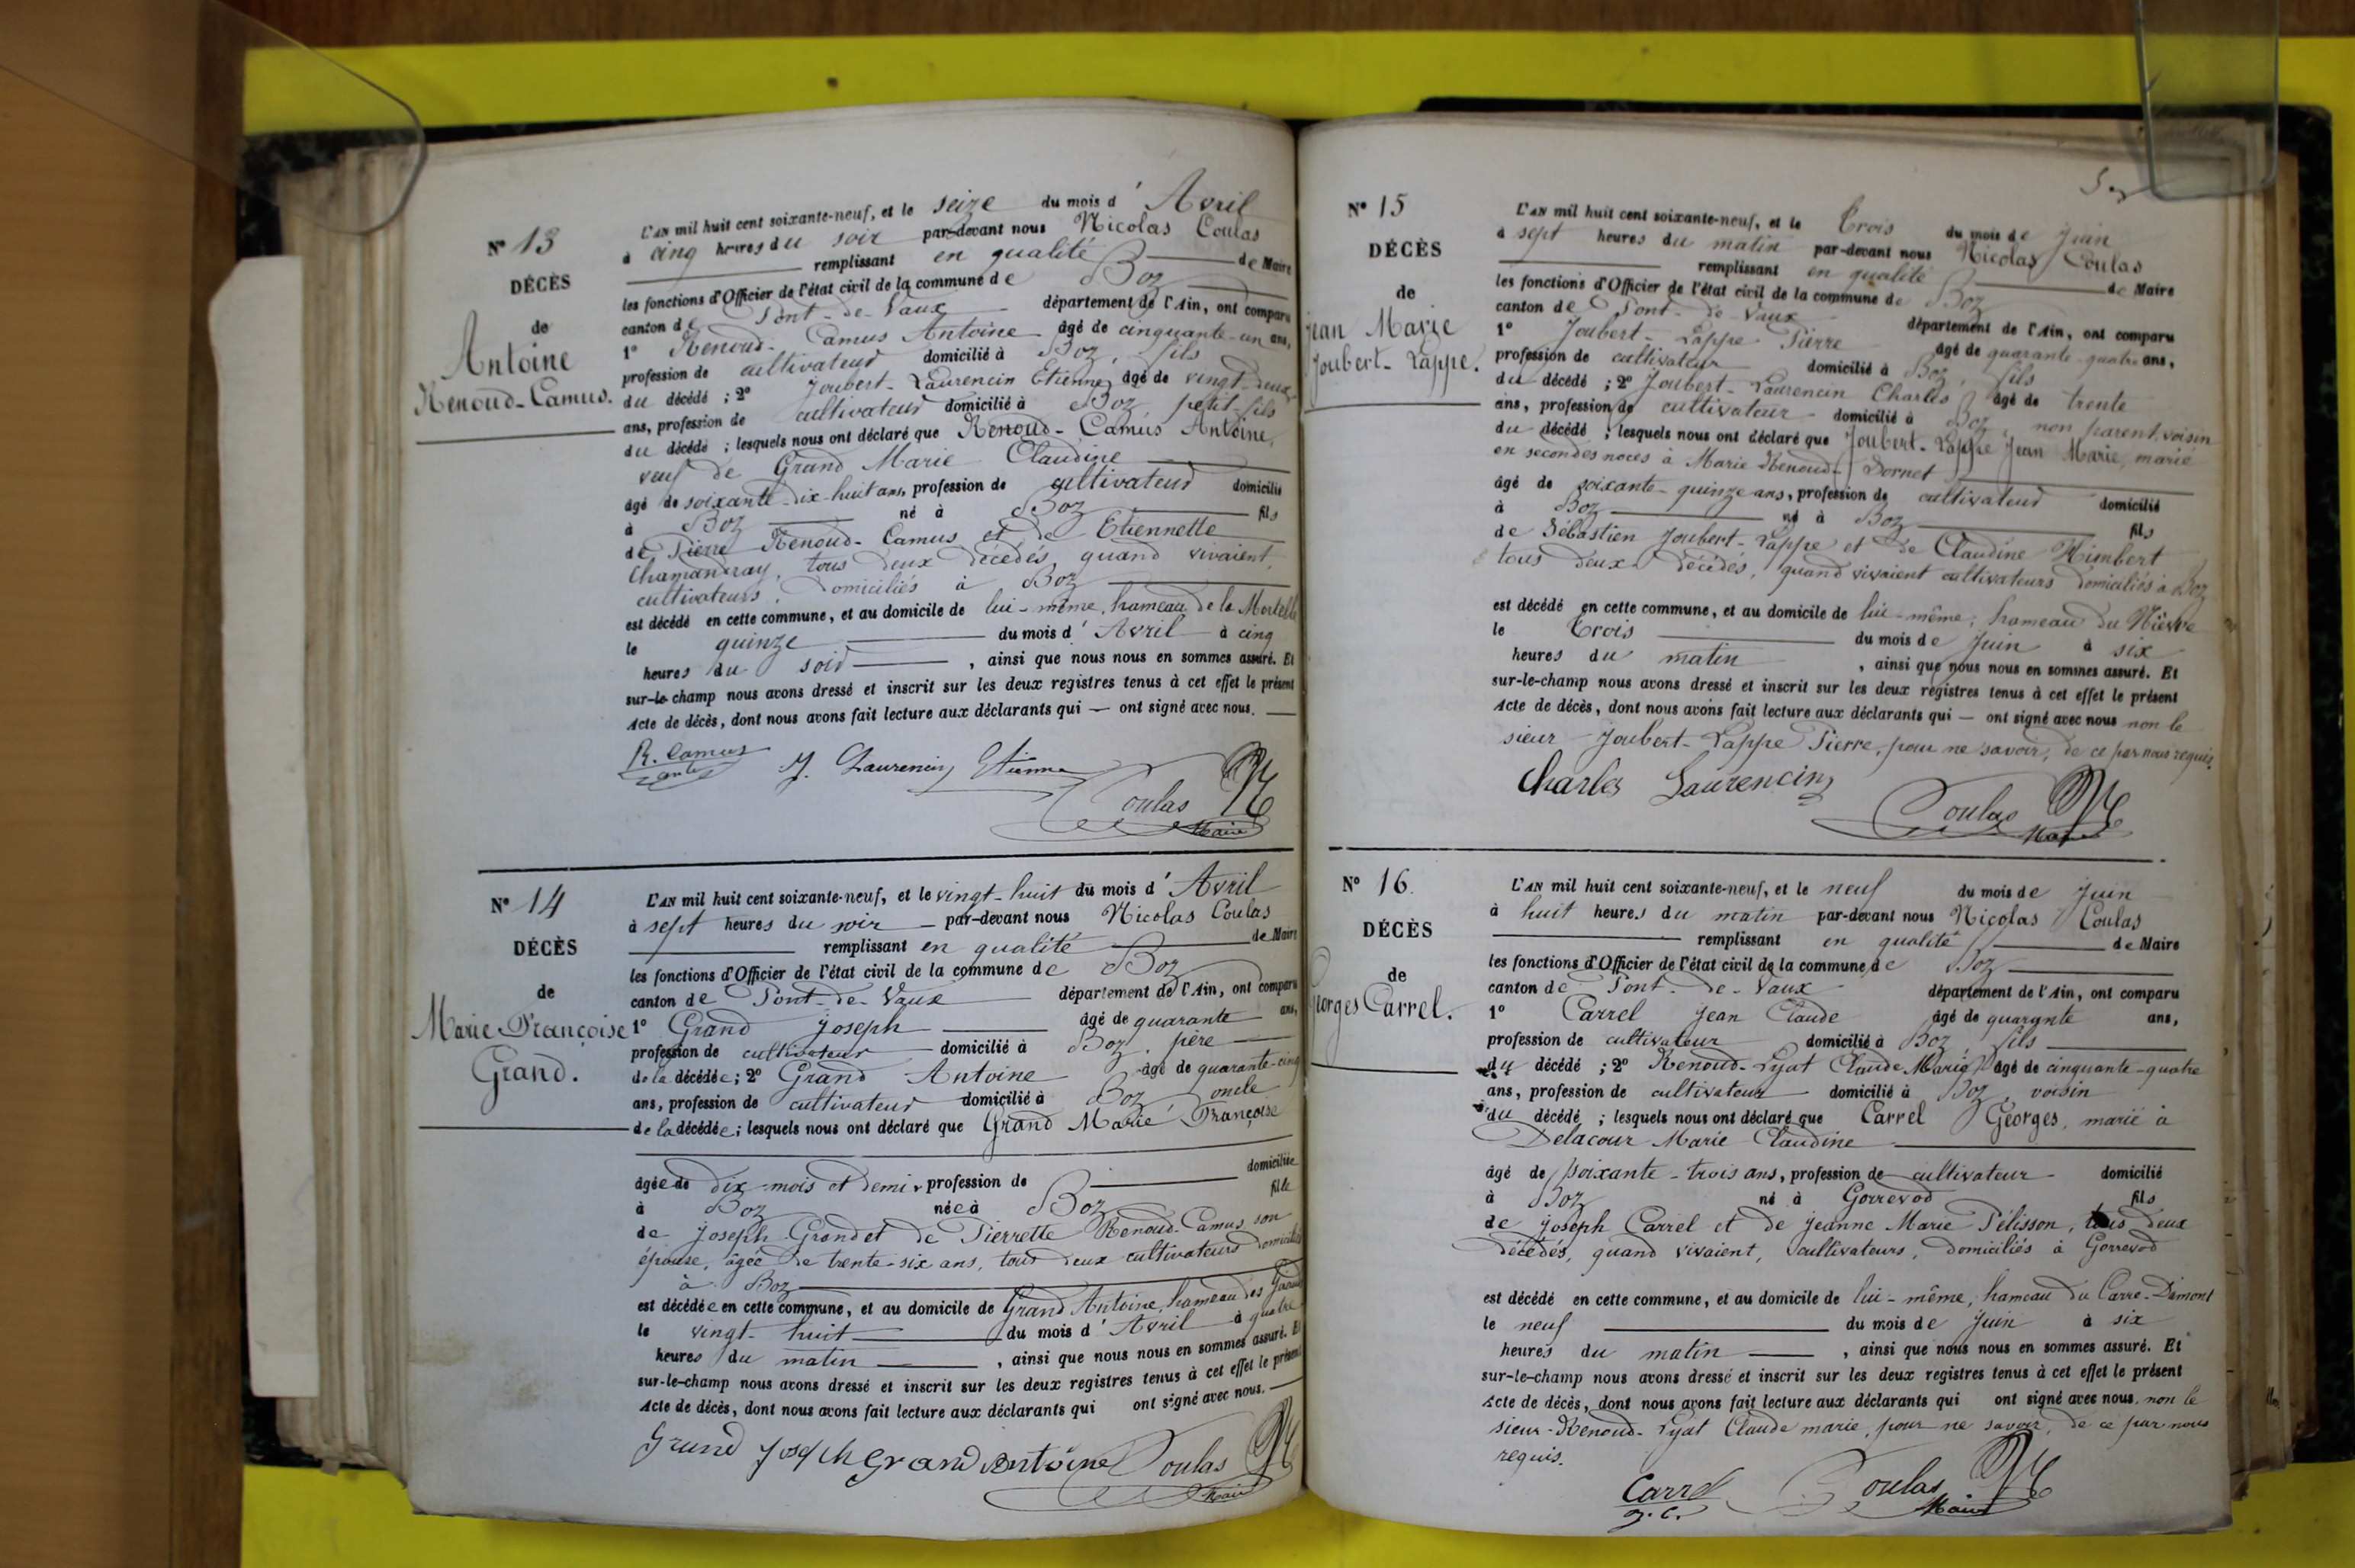 N° 13
DÉCÈS
de
Antoine
Renoud-Camus.
L'AN mil huit cent soixante-neuf, et le seize du mois d'Avril
à cinq heures du soir par-devant nous Nicolas Coulas
remplissant en qualité de Maire
les fonctions d'Officier de l'état civil de la commune de Boz
canton de Pont-de-Vaux département de l'Ain, ont comparu
1° Renoud-Camus Antoine âgé de cinquante-un ans,
profession de cultivateur domicilié à Boz, fils
du décédé ; 2° Joubert-Laurencin Etienne, âgé de vingt-deux
ans, profession de cultivateur domicilié à Boz, petit-fils
du décédé ; lesquels nous ont déclaré que Renoud-Camus Antoine,
veuf de Grand Marie Claudine
âgé de soixante-dix-huit ans, profession de cultivateur domicilié
à Boz né à Boz fils
de Pierre Renoud-Camus et de Etiennette
Chamandray, tous deux décédés, quand vivaient,
cultivateurs, domiciliés à Boz
est décédé en cette commune, et au domicile de lui-même, hameau de la
le quinze du mois d'Avril à cinq
heures du soir , ainsi que nous nous en sommes assuré. Et
sur-le-champ nous avons dressé et inscrit sur les deux registres tenus à cet effet le présent
Acte de décès, dont nous avons fait lecture aux déclarants qui — ont signé avec nous.
R. Camus
J. Laurencin Etienne
Coulas
Maire
N° 14
DÉCÈS
de
Marie Françoise
Grand.
L'AN mil huit cent soixante-neuf, et le vingt-huit du mois d'Avril
à sept heures du soir par-devant nous Nicolas Coulas
remplissant en qualité de Maire
les fonctions d'Officier de l'état civil de la commune de Boz
canton de Pont-de-Vaux département de l'Ain, ont comparu
1° Grand Joseph âgé de quarante ans,
profession de cultivateur domicilié à Boz, père
de la décédée ; 2° Grand Antoine âgé de quarante-cinq
ans, profession de cultivateur domicilié à Boz oncle
de la décédée ; lesquels nous ont déclaré que Grand Marie Françoise
âgée de dix mois et demi, profession de domiciliée
à Boz née à Boz fille
de Joseph Grand et de Pierrette Renoud-Camus son
épouse, âgée de trente-six ans, tous deux cultivateurs domiciliés
à Boz
est décédée en cette commune, et au domicile de Grand Antoine, hameau des
le vingt-huit du mois d'Avril à quatre
heures du matin , ainsi que nous nous en sommes assuré. Et
sur-le-champ nous avons dressé et inscrit sur les deux registres tenus à cet effet le présent
Acte de décès, dont nous avons fait lecture aux déclarants qui ont signé avec nous.
Grand Joseph Grand Antoine Coulas
Maire
N° 15
DÉCÈS
de
Jean Marie
Joubert-Lappe.
L'AN mil huit cent soixante-neuf, et le trois du mois de Juin
à sept heures du matin par-devant nous Nicolas Coulas
remplissant en qualité de Maire
les fonctions d'Officier de l'état civil de la commune de Boz
canton de Pont-de-Vaux département de l'Ain, ont comparu
1° Joubert-Lappe Pierre âgé de quarante-quatre ans,
profession de cultivateur domicilié à Boz, fils
du décédé ; 2° Joubert-Laurencin Charles âgé de trente
ans, profession de cultivateur domicilié à Boz, non parent, voisin
du décédé ; lesquels nous ont déclaré que Joubert-Lappe Jean Marie, marié
en secondes noces à Marie Renoud-Dornet
âgé de soixante-quinze ans, profession de cultivateur domicilié
à Boz né à Boz fils
de Sébastien Joubert-Lappe et de Claudine Himbert
tous deux décédés, quand vivaient cultivateurs domiciliés à Boz
est décédé en cette commune, et au domicile de lui-même, hameau du
le trois du mois de Juin à six
heures du matin , ainsi que nous nous en sommes assuré. Et
sur-le-champ nous avons dressé et inscrit sur les deux registres tenus à cet effet le présent
Acte de décès, dont nous avons fait lecture aux déclarants qui — ont signé avec nous non le
sieur Joubert-Lappe Pierre, pour ne savoir, de ce par nous requis.
Charles Laurencin
Coulas
Maire
N° 16.
DÉCÈS
de
Georges Carrel.
L'AN mil huit cent soixante-neuf, et le neuf du mois de Juin
à huit heures du matin par-devant nous Nicolas Coulas
remplissant en qualité de Maire
les fonctions d'Officier de l'état civil de la commune de Boz
canton de Pont-de-Vaux département de l'Ain, ont comparu
1° Carrel Jean Claude âgé de quarante ans,
profession de cultivateur domicilié à Boz, fils
du décédé ; 2° Renoud-Lyat Claude Marie âgé de cinquante-quatre
ans, profession de cultivateur domicilié à Boz, voisin
du décédé ; lesquels nous ont déclaré que Carrel Georges, marié à
Delacour Marie Claudine
âgé de soixante-trois ans, profession de cultivateur domicilié
à Boz né à Gorrevod fils
de Joseph Carrel et de Jeanne Marie Pélisson, tous deux
décédés, quand vivaient, cultivateurs, domiciliés à Gorrevod
est décédé en cette commune, et au domicile de lui-même, hameau du Carre-Dimont
le neuf du mois de Juin à six
heures du matin , ainsi que nous nous en sommes assuré. Et
sur-le-champ nous avons dressé et inscrit sur les deux registres tenus à cet effet le présent
Acte de décès, dont nous avons fait lecture aux déclarants qui ont signé avec nous, non le
sieur Renoud-Lyat Claude marie, pour ne savoir, de ce par nous
requis.
Carrel
J. C.
Coulas
Maire